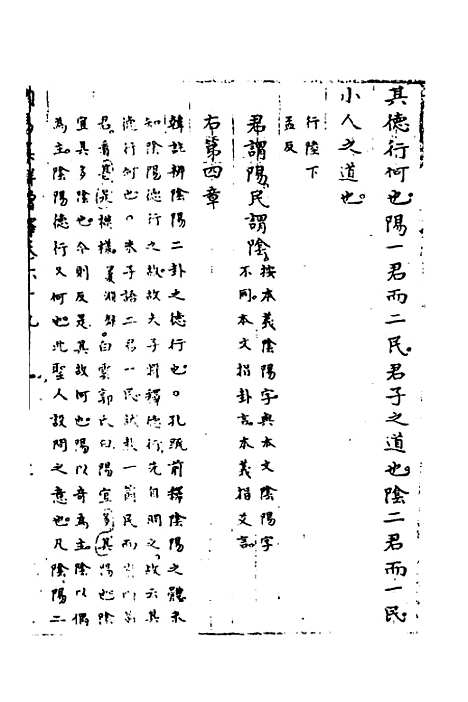 其德行何也陽一君而二民君子之道也陰二君而一民
小人之道也
行陸下
孟反
君謂陽民謂陰按本義陰陽字與本文陰陽字
不同本文指卦言本義指爻言
右第四章
韓註辨陰陽二卦之德行也○孔疏前釋陰陽之體未
知陰陽德行之故故夫子將釋德行先自明之故云其
德行何也○朱子語二君一民試教一箇民而有兩箇
君看是甚模樣 白雲郭氏曰陽宜多其陽也陰
宜其多陰也今則反是其故何也陽以奇為主陰以偶
為主陰陽德行又何也此聖人設問之意也凡陰陽二